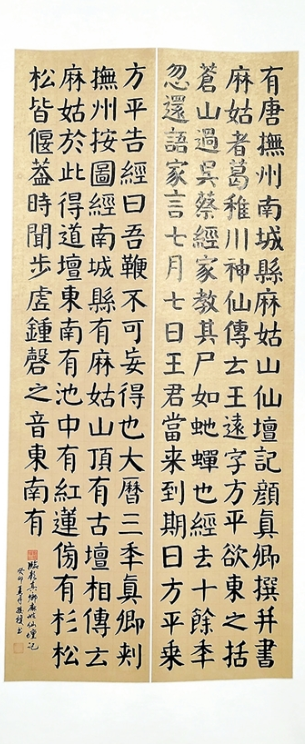 有唐撫州南城縣麻姑山仙壇記顏真卿撰并書
麻姑者葛稚川神仙傳云王遠字方平欲東之括
蒼山過吳蔡經家教其尸如虵蟬也經去十餘年
忽還語家言七月七日王君當来到期日方平来
方平告經曰吾鞭不可妄得也大曆三年真卿刾
撫州按圖經南城縣有麻姑山頂有古壇相傳云
麻姑於此得道壇東南有池中有紅蓮傍有杉松
松皆偃葢時聞步虛鍾磬之音東南有
臨顏真卿麻姑仙壇記
癸卯